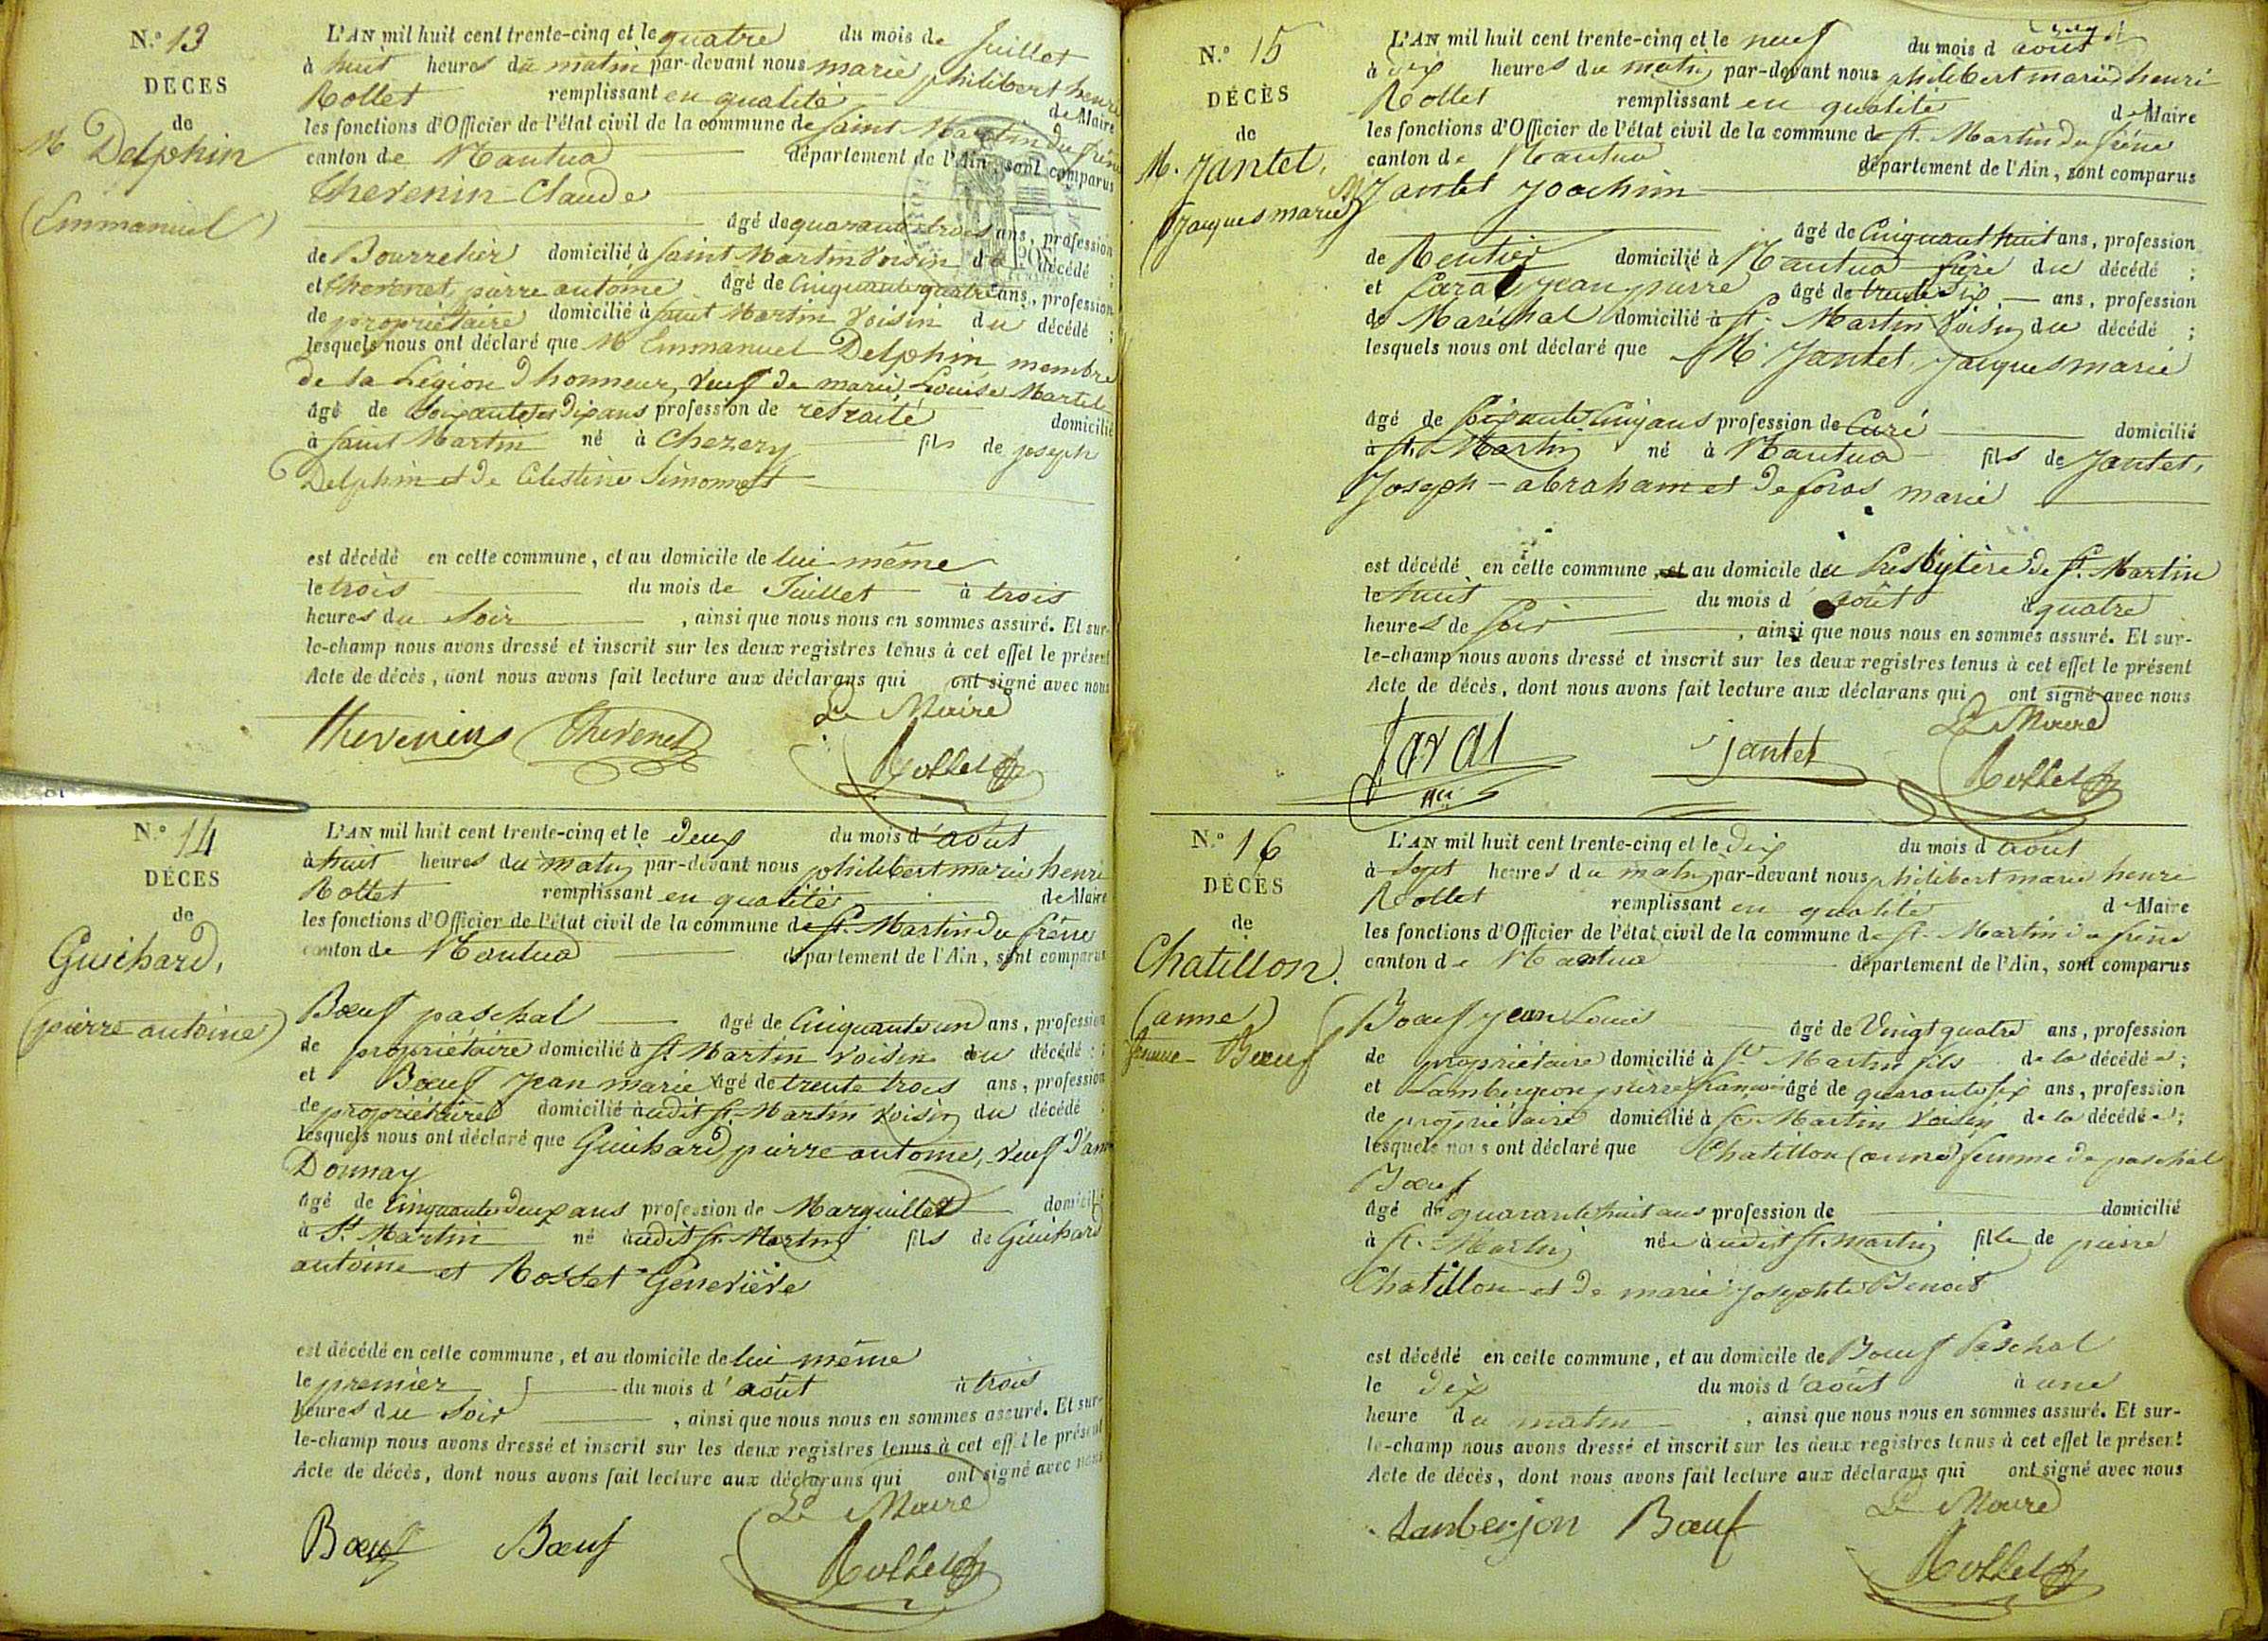 N.° 13
DÉCÈS
de
M Delphin
(Emmanuel)
L'AN mil huit cent trente-cinq et le quatre du mois de Juillet
à huit heures du matin par-devant nous marie philibert henri
Rollet remplissant en qualité de Maire
les fonctions d'Officier de l'état civil de la commune de Saint Martin du frêne
canton de Nantua département de l'Ain, sont comparus
Thevenin Claude
âgé de quarante trois ans, profession
de Bourrelier domicilié à Saint Martin Voisin du décédé ;
et Thevenet, pierre antoine âgé de Cinquante quatre ans, profession
de propriétaire domicilié à Saint Martin Voisin du décédé ;
lesquels nous ont déclaré que M Emmanuel Delphin, membre
de la Légion d'honneur, Veuf de marie Louise Martel
âgé de Soixante et Dix ans profession de retraité domicilié
à Saint Martin né à Chezery fils de joseph
Delphin et de Celestine Simonnet
est décédé en cette commune, et au domicile de lui même
le trois du mois de Juillet à trois
heures du Soir , ainsi que nous nous en sommes assuré. Et sur-
le-champ nous avons dressé et inscrit sur les deux registres tenus à cet effet le présent
Acte de décès, dont nous avons fait lecture aux déclarans qui ont signé avec nous
Le Maire
Thevenin Thevenet Rollet
N.° 14
DÉCÈS
de
Guichard,
(pierre antoine)
L'AN mil huit cent trente-cinq et le deux du mois d'août
à huit heures du matin par-devant nous philibert marie henri
Rollet remplissant en qualité de Maire
les fonctions d'Officier de l'état civil de la commune de St. Martin du frêne
canton de Nantua département de l'Ain, sont comparus
Bœuf paschal âgé de Cinquante un ans, profession
de propriétaire domicilié à St Martin Voisin du décédé ;
et Bœuf Jean marie âgé de trente trois ans, profession
de propriétaire domicilié audit St. Martin Voisin du décédé
lesquels nous ont déclaré que Guichard, pierre antoine, Veuf d'anne
Donnay
âgé de Cinquante Deux ans profession de Marguillier domicilié
à St. Martin né audit St. Martin fils de Guichard
antoine et Rosset Geneviève
est décédé en cette commune, et au domicile de lui même
le premier du mois d'août à trois
heures du Soir , ainsi que nous nous en sommes assuré. Et sur-
le-champ nous avons dressé et inscrit sur les deux registres tenus à cet effet le présent
Acte de décès, dont nous avons fait lecture aux déclarans qui ont signé avec nous
Le Maire
Bœuf Bœuf Rollet
N.° 15
DÉCÈS
de
M. Jantet,
(Jacques marie)
L'AN mil huit cent trente-cinq et le neuf du mois d août
à dix heures du matin par-devant nous philibert marie henri
Rollet remplissant en qualité de Maire
les fonctions d'Officier de l'état civil de la commune de St. Martin du frêne
canton de Nantua département de l'Ain, sont comparus
M Jantet Joachim
âgé de Cinquante huit ans, profession
de Rentier domicilié à Nantua frère du décédé ;
et Caral jean pierre âgé de trente Six ans, profession
de Maréchal domicilié à St. Martin Voisin du décédé ;
lesquels nous ont déclaré que M. Jantet, Jacques marie
âgé de Soixante Cinq ans profession de Curé domicilié
à St. Martin né à Nantua fils de Jantet,
Joseph-abraham et de foras marie
est décédé en cette commune, et au domicile du Presbytère de St. Martin
le huit du mois d'août à quatre
heures de Soir , ainsi que nous nous en sommes assuré. Et sur-
le-champ nous avons dressé et inscrit sur les deux registres tenus à cet effet le présent
Acte de décès, dont nous avons fait lecture aux déclarans qui ont signé avec nous
Le Maire
jantet Rollet
N.° 16
DÉCÈS
de
Chatillon.
(anne)
femme Bœuf
L'AN mil huit cent trente-cinq et le dix du mois d août
à Sept heures du matin par-devant nous philibert marie henri
Rollet remplissant en qualité de Maire
les fonctions d'Officier de l'état civil de la commune de St. Martin du frêne
canton de Nantua département de l'Ain, sont comparus
Bœuf jean Louis âgé de Vingt quatre ans, profession
de propriétaire domicilié à St Martin fils de la décédée ;
et Lambergeon pierre françois âgé de quarante six ans, profession
de propriétaire domicilié à St. Martin Voisin de la décédée ;
lesquels nous ont déclaré que Chatillon (anne) femme de paschal
Bœuf
âgé de quarante huit ans profession de domicilié
à St. Martin née audit St. Martin fille de pierre
Chatillon et de marie josephte Benoit
est décédé en cette commune, et au domicile de Bœuf Paschal
le dix du mois d'août à une
heure du matin , ainsi que nous nous en sommes assuré. Et sur-
le-champ nous avons dressé et inscrit sur les deux registres tenus à cet effet le présent
Acte de décès, dont nous avons fait lecture aux déclarans qui ont signé avec nous
Le Maire
Lanberjon Bœuf Rollet